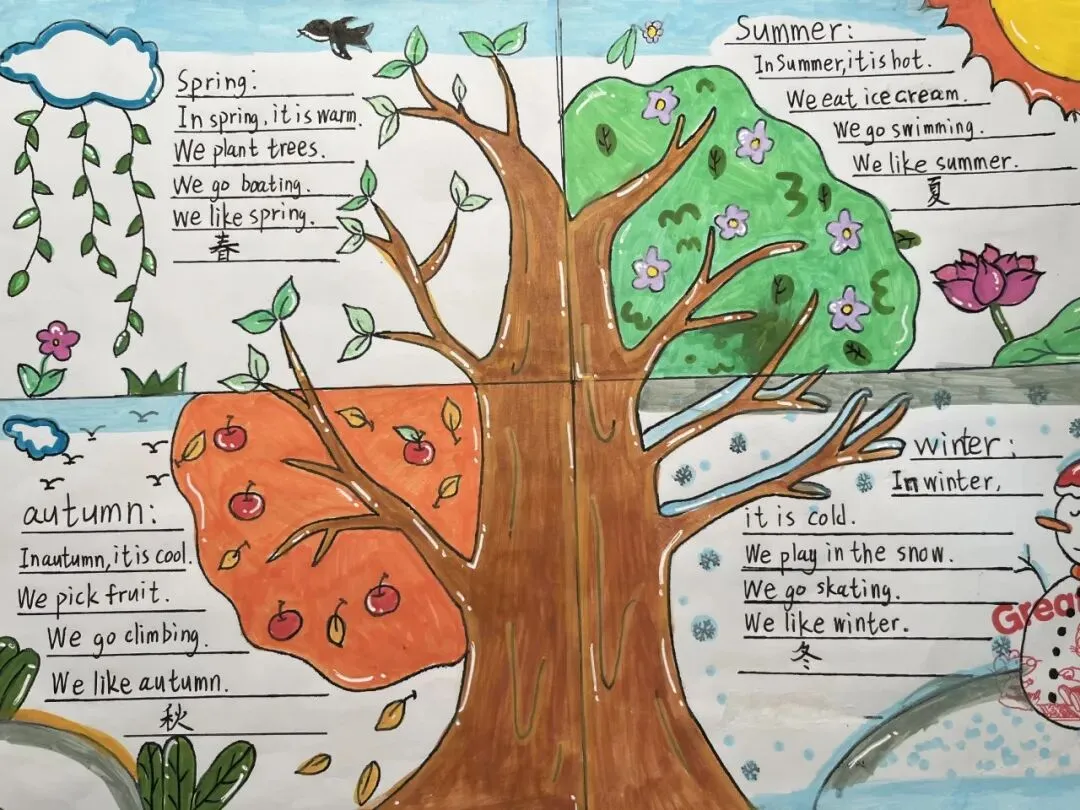 Spring:
In spring, it is warm.
We plant trees.
We go boating.
We like spring.
春
Summer:
In Summer, it is hot.
We eat ice cream.
We go swimming.
We like summer.
夏
autumn:
In autumn, it is cool.
We pick fruit.
We go climbing.
We like autumn.
秋
winter:
In winter,
it is cold.
We play in the snow.
We go skating.
We like winter.
冬